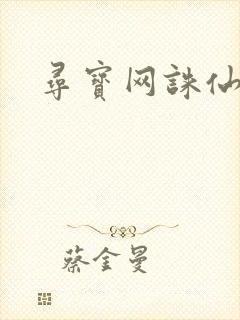 尋寶网誅仙
蔡金曼